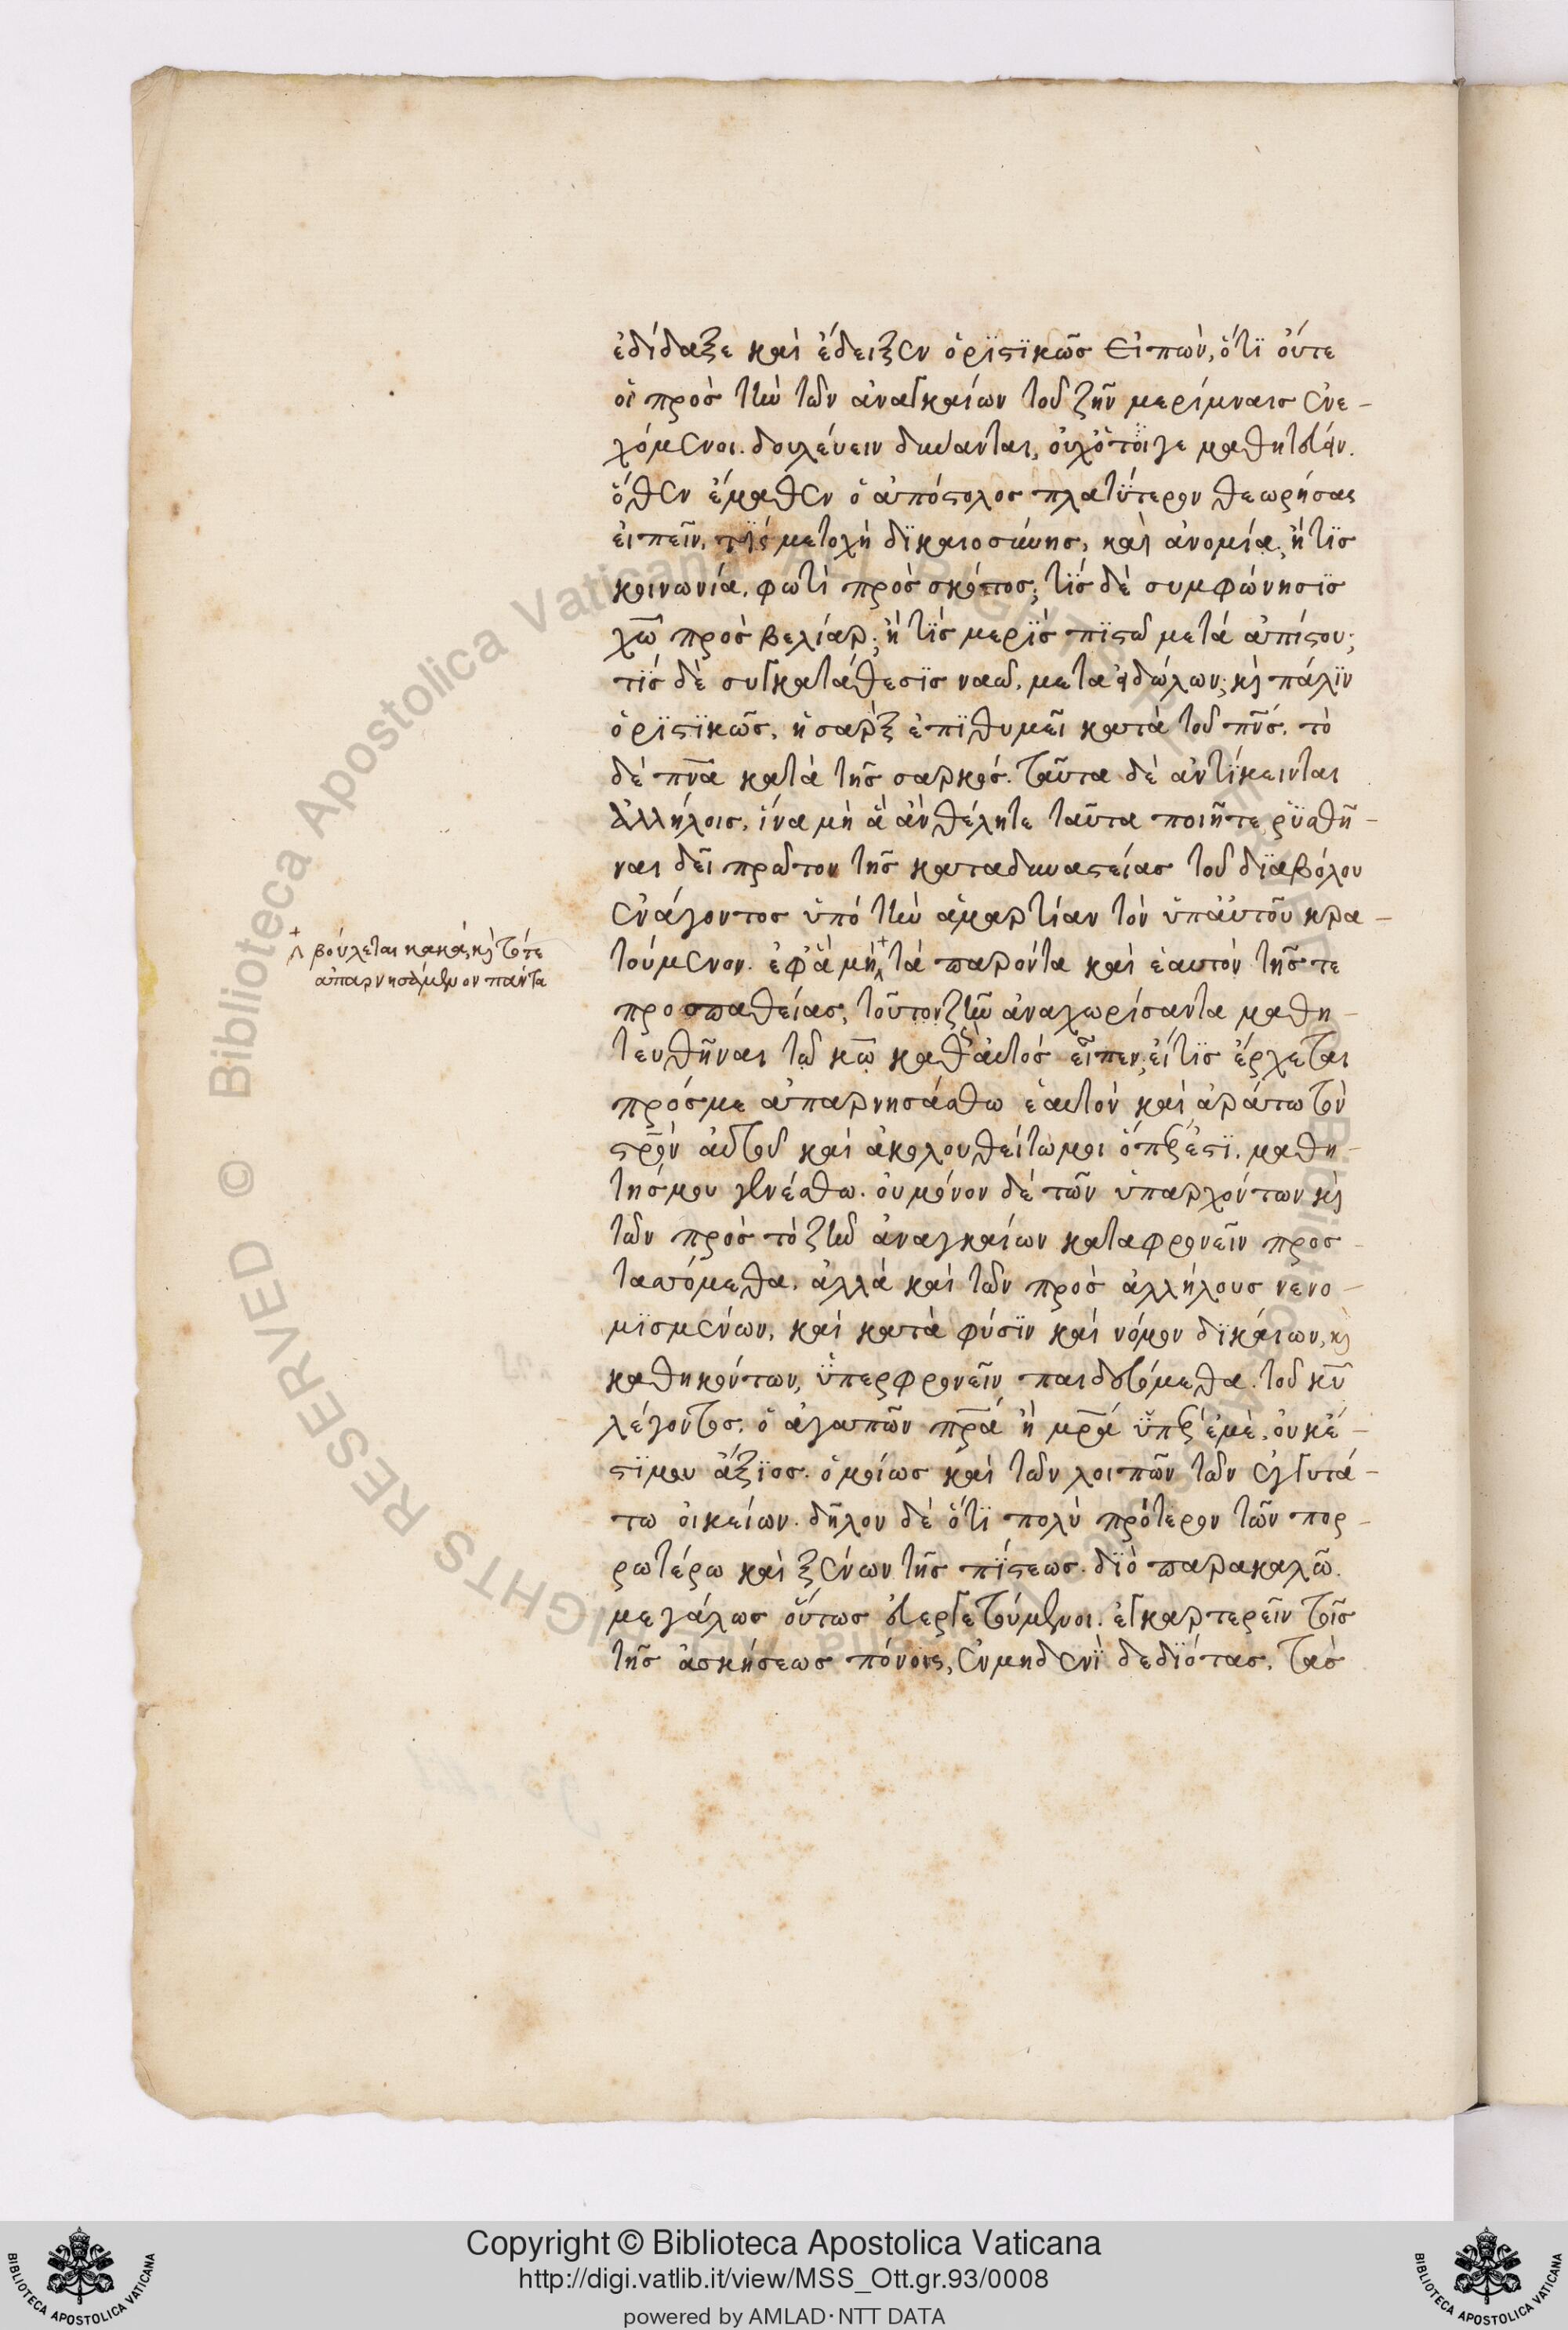 ἐδίδαξε καὶ ἔδειξεν ὁρϊστϊκῶσ Εἰπὼν, ὅτϊ οὔτε
οἱ πρὸσ τὴν τῶν ἀναγκαίων τοῦ ζῆν μερίμναισ ἐνε-
χόμενοι. δουλεύειν δύνανται, οὐχότοῖγε μαθητεύειν.
ὅθεν ἔμαθεν ὁ ἀπόστολοσ πλατΰτερον θεωρήσας
εἰπεῖν, τϊς μετοχὴ δϊκαιοσύνησ, καὶ ἀνομία, ἢ τϊσ
κοινωνία, φωτὶ πρὸσ σκότοσ; τϊσ δὲ συμφώνησϊσ
χω̅ πρὸσ βελίαρ; ἢ τϊσ μερϊσ πϊστοῦ μετά ἀπίστου;
τϊσ δὲ συγκατάθεσϊσ ναοῦ, μετα ἐιδώλων; κὶ πάλϊν
ὁρϊστϊκῶσ, ἡ σαρξ ἐπϊθυμεῖ κατὰ τοῦ πν̅σ. τὸ
δὲ πν̅α κατὰ τῆσ σαρκόσ. ταῦτα δὲ ἀντϊκεινται
ἀλλήλοισ, ἵνα μὴ ἃ ἀν θέλητε ταῦτα ποιῆτε, ρϋσθῆ-
ναι δεῖ πρῶτον τῆσ καταδυναστείασ τοῦ δϊαβόλου
ἐνάγοντοσ ὑπό τὴν ἁμαρτίαν τὸν ὑπἀυτοῦ κρα-
τούμενον. ἐφ ἃ μὴ τά παρόντα καὶ ἑαυτὸν τῆσ τε
βούλεται κακά, κὶ τότε
ἀπαρνησάμενον πάντα
προσπαθείασ, τοῦτον ζῆν ἀναχωρίσαντα μαθη-
τευθῆναι τῶ κω̅ καθ ἀυτόσ εἶπεν, εἴτϊσ ἔρχεται
πρόσμε ἀπαρνησάσθω ἑαυτὸν καὶ ἀράτω τὸν
στρ̅ὸν ἀυτοῦ καὶ ἀκολουθείτωμοι ὅπερέστϊ. μαθη-
τήσμου γενέσθω. οὐ μόνον δὲ τῶν ὑπαρχόντων κὶ
τῶν πρὸσ τὸ ζῆν ἀναγκαίων καταφρονεῖν προσ-
ταττόμεθα. ἀλλὰ καὶ τῶν πρὸσ ἀλλήλουσ νενο-
μϊσμένων, καὶ κατὰ φύσϊν καὶ νόμον δϊκάιων, κὶ
καθηκόντων, ϋπερφρονεῖν παιδευόμεθα. τοῦ κυ̅
λέγοντοσ. ὁ ἀγαπῶν πρ̅α ἢ μρ̅α ϋπερ ἐμὲ, οὐκέ-
στϊμου ἄξϊοσ. ὁμοίωσ καὶ τῶν λοιπῶν τῶν ἐγγυτά-
τω οἰκείων. δῆλον δὲ ὅτϊ πολὺ πρότερον τῶν πορ-
ρωτέρω καὶ ξένων τῆσ πϊστεωσ. δϊὸ παρακαλῶ.
μεγάλωσ οὕτωσ ἐυεργετούμενοι. ἐγκαρτερεῖν τοῖσ
τῆσ ἀσκήσεωσ πόνοις, ἐν μηδενϊ δεδϊότασ. τὰσ
Copyright © Biblioteca Apostolica Vaticana
http://digi.vatlib.it/view/MSS_Ott.gr.93/0008
powered by AMLAD·NTT DATA